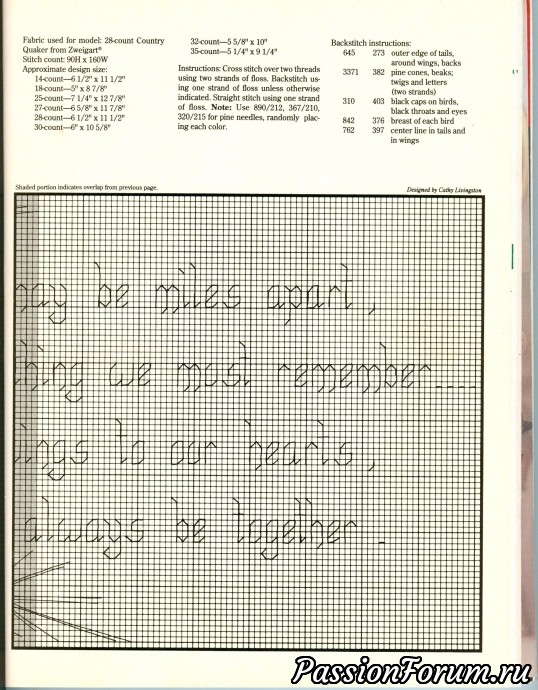 Fabric used for model: 28-count Country
Quaker from Zweigart®
Stitch count: 90H x 160W
Approximate design size:
14-count—6 1/2" x 11 1/2"
18-count—5" x 8 7/8"
25-count—7 1/4" x 12 7/8"
27-count—6 5/8" x 11 7/8"
28-count—6 1/2" x 11 1/2"
30-count—6" x 10 5/8"
32-count—5 5/8" x 10"
35-count—5 1/4" x 9 1/4"
Instructions: Cross stitch over two threads
using two strands of floss. Backstitch us-
ing one strand of floss unless otherwise
indicated. Straight stitch using one strand
of floss. Note: Use 890/212, 367/210,
320/215 for pine needles, randomly plac-
ing each color.
Backstitch instructions:
645 273 outer edge of tails,
around wings, backs
3371 382 pine cones, beaks;
twigs and letters
(two strands)
310 403 black caps on birds,
black throats and eyes
842 376 breast of each bird
762 397 center line in tails and
in wings
Shaded portion indicates overlap from previous page.
Designed by Cathy Livingston
may be miles apart,
hing we most remember....
ings to our hearts,
always be together.
PassionForum.ru